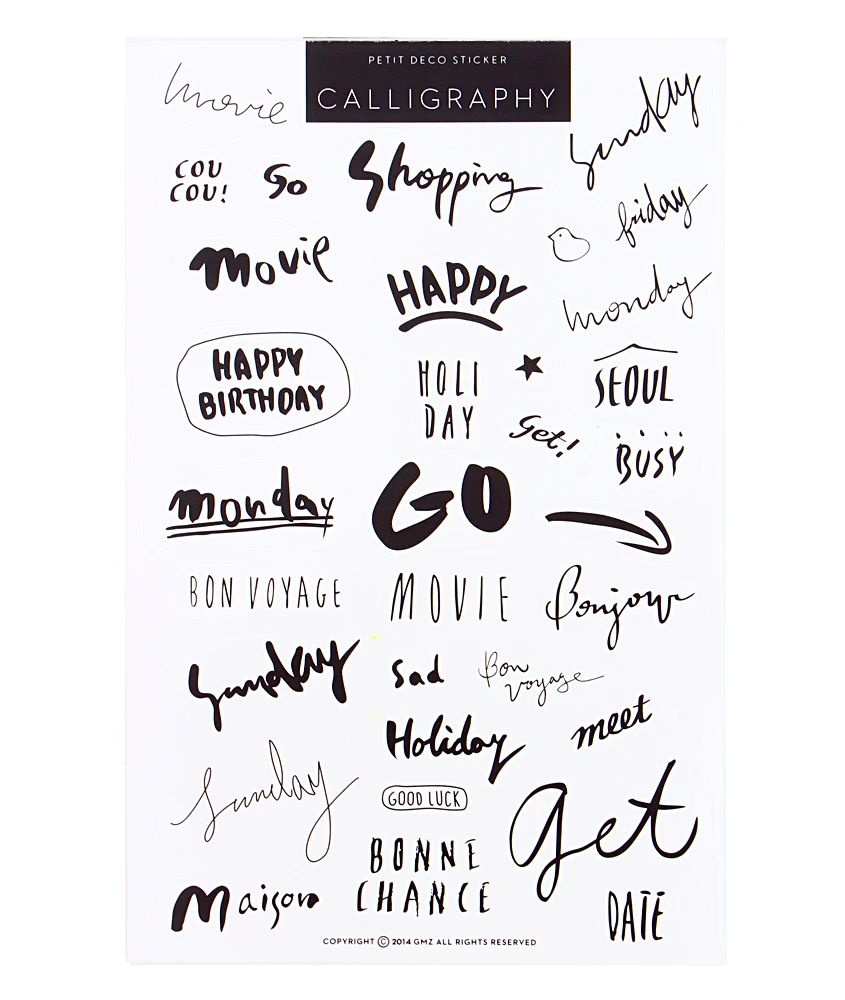 PETIT DECO STICKER
CALLIGRAPHY
movie
Sunday
COU
COU!
Go
Shopping
friday
movie
HAPPY
monday
HAPPY
BIRTHDAY
HOLI
DAY
SEOUL
Get!
BUSY
monday
GO
BON VOYAGE
MOVIE
Bonjour
Sunday
Sad
Bon
voyage
Holiday
meet
Sunday
GOOD LUCK
get
BONNE
CHANCE
Maison
DATE
COPYRIGHT © 2014 GMZ ALL RIGHTS RESERVED